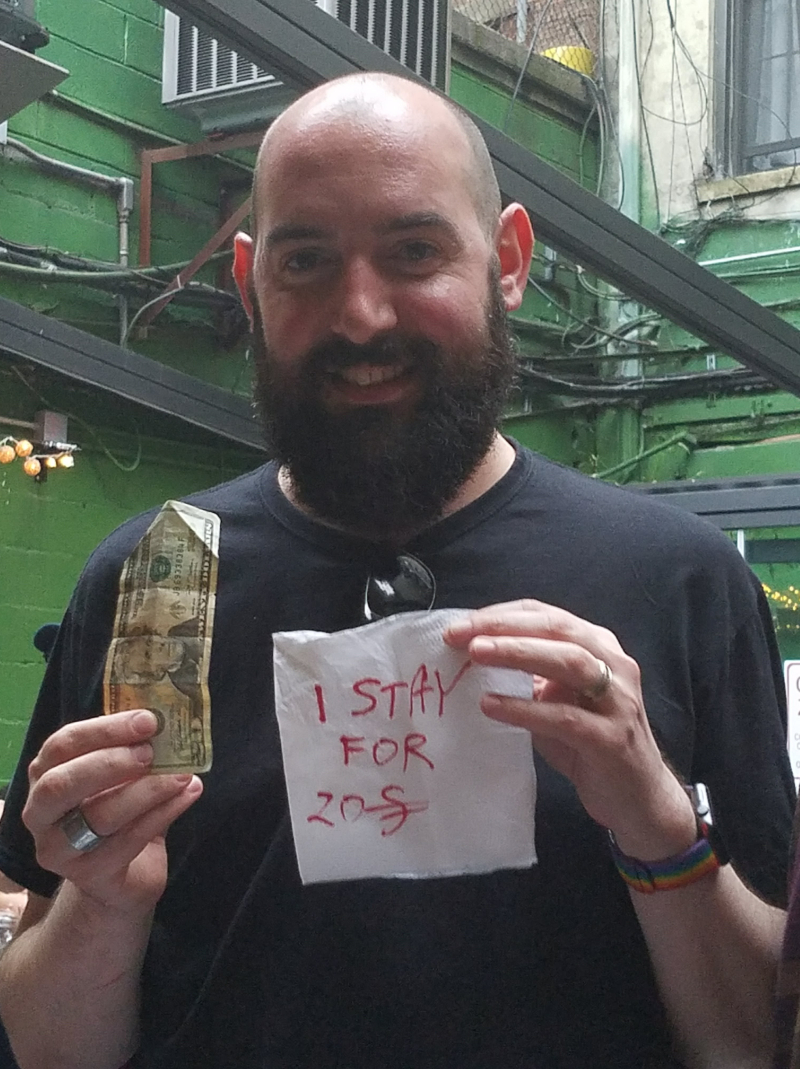 I STAY
FOR
20$